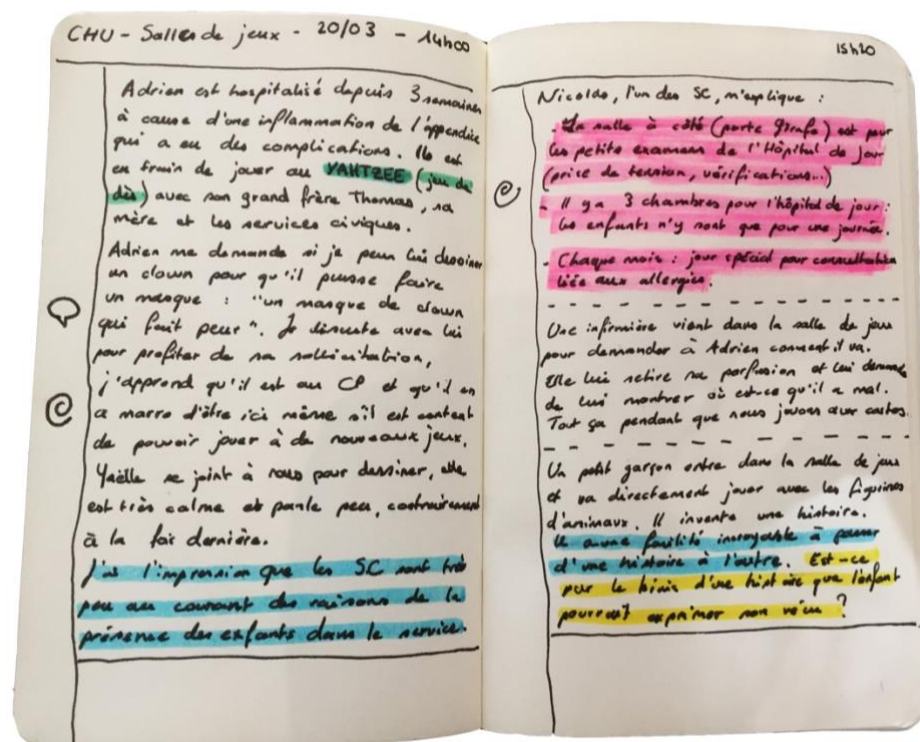 CHU - Salles de jeux - 20/03 - 14h00
Adrien est hospitalisé depuis 3 semaines
à cause d'une inflammation de l'appendice
qui a eu des complications. Il est
en train de jouer au YAHTZEE (jeu de
dés) avec son grand frère Thomas, sa
mère et les services civiques.
Adrien me demande si je peux lui dessiner
un clown pour qu'il puisse faire
un masque : "un masque de clown
qui fait peur". Je discute avec lui
pour profiter de sa sollicitation,
j'apprend qu'il est au CP et qu'il en
a marre d'être ici même s'il est content
de pouvoir jouer à de nouveaux jeux.
Yaëlle se joint à nous pour dessiner, elle
est très calme et parle peu, contrairement
à la fois dernière.
J'ai l'impression que les SC sont très
peu au courant des raisons de la
présence des enfants dans le service.
15h20
Nicolas, l'un des SC, m'explique :
- La salle à côté (porte Girafe) est pour
les petits examens de l'Hôpital de Jour
(prise de tension, vérifications...)
- Il y a 3 chambres pour l'hôpital de jour :
les enfants n'y sont que pour une journée.
- Chaque mois : jour spécial pour consultation
liée aux allergies.
Une infirmière vient dans la salle de jeux
pour demander à Adrien comment il va.
Elle lui retire sa perfusion et lui demande
de lui montrer où est-ce qu'il a mal.
Tout ça pendant que nous jouons aux cartes.
Un petit garçon entre dans la salle de jeux
et va directement jouer avec les figurines
d'animaux. Il invente une histoire.
Il a une facilité incroyable à passer
d'une histoire à l'autre. Est-ce
par le biais d'une histoire que l'enfant
pourrait exprimer son vécu ?